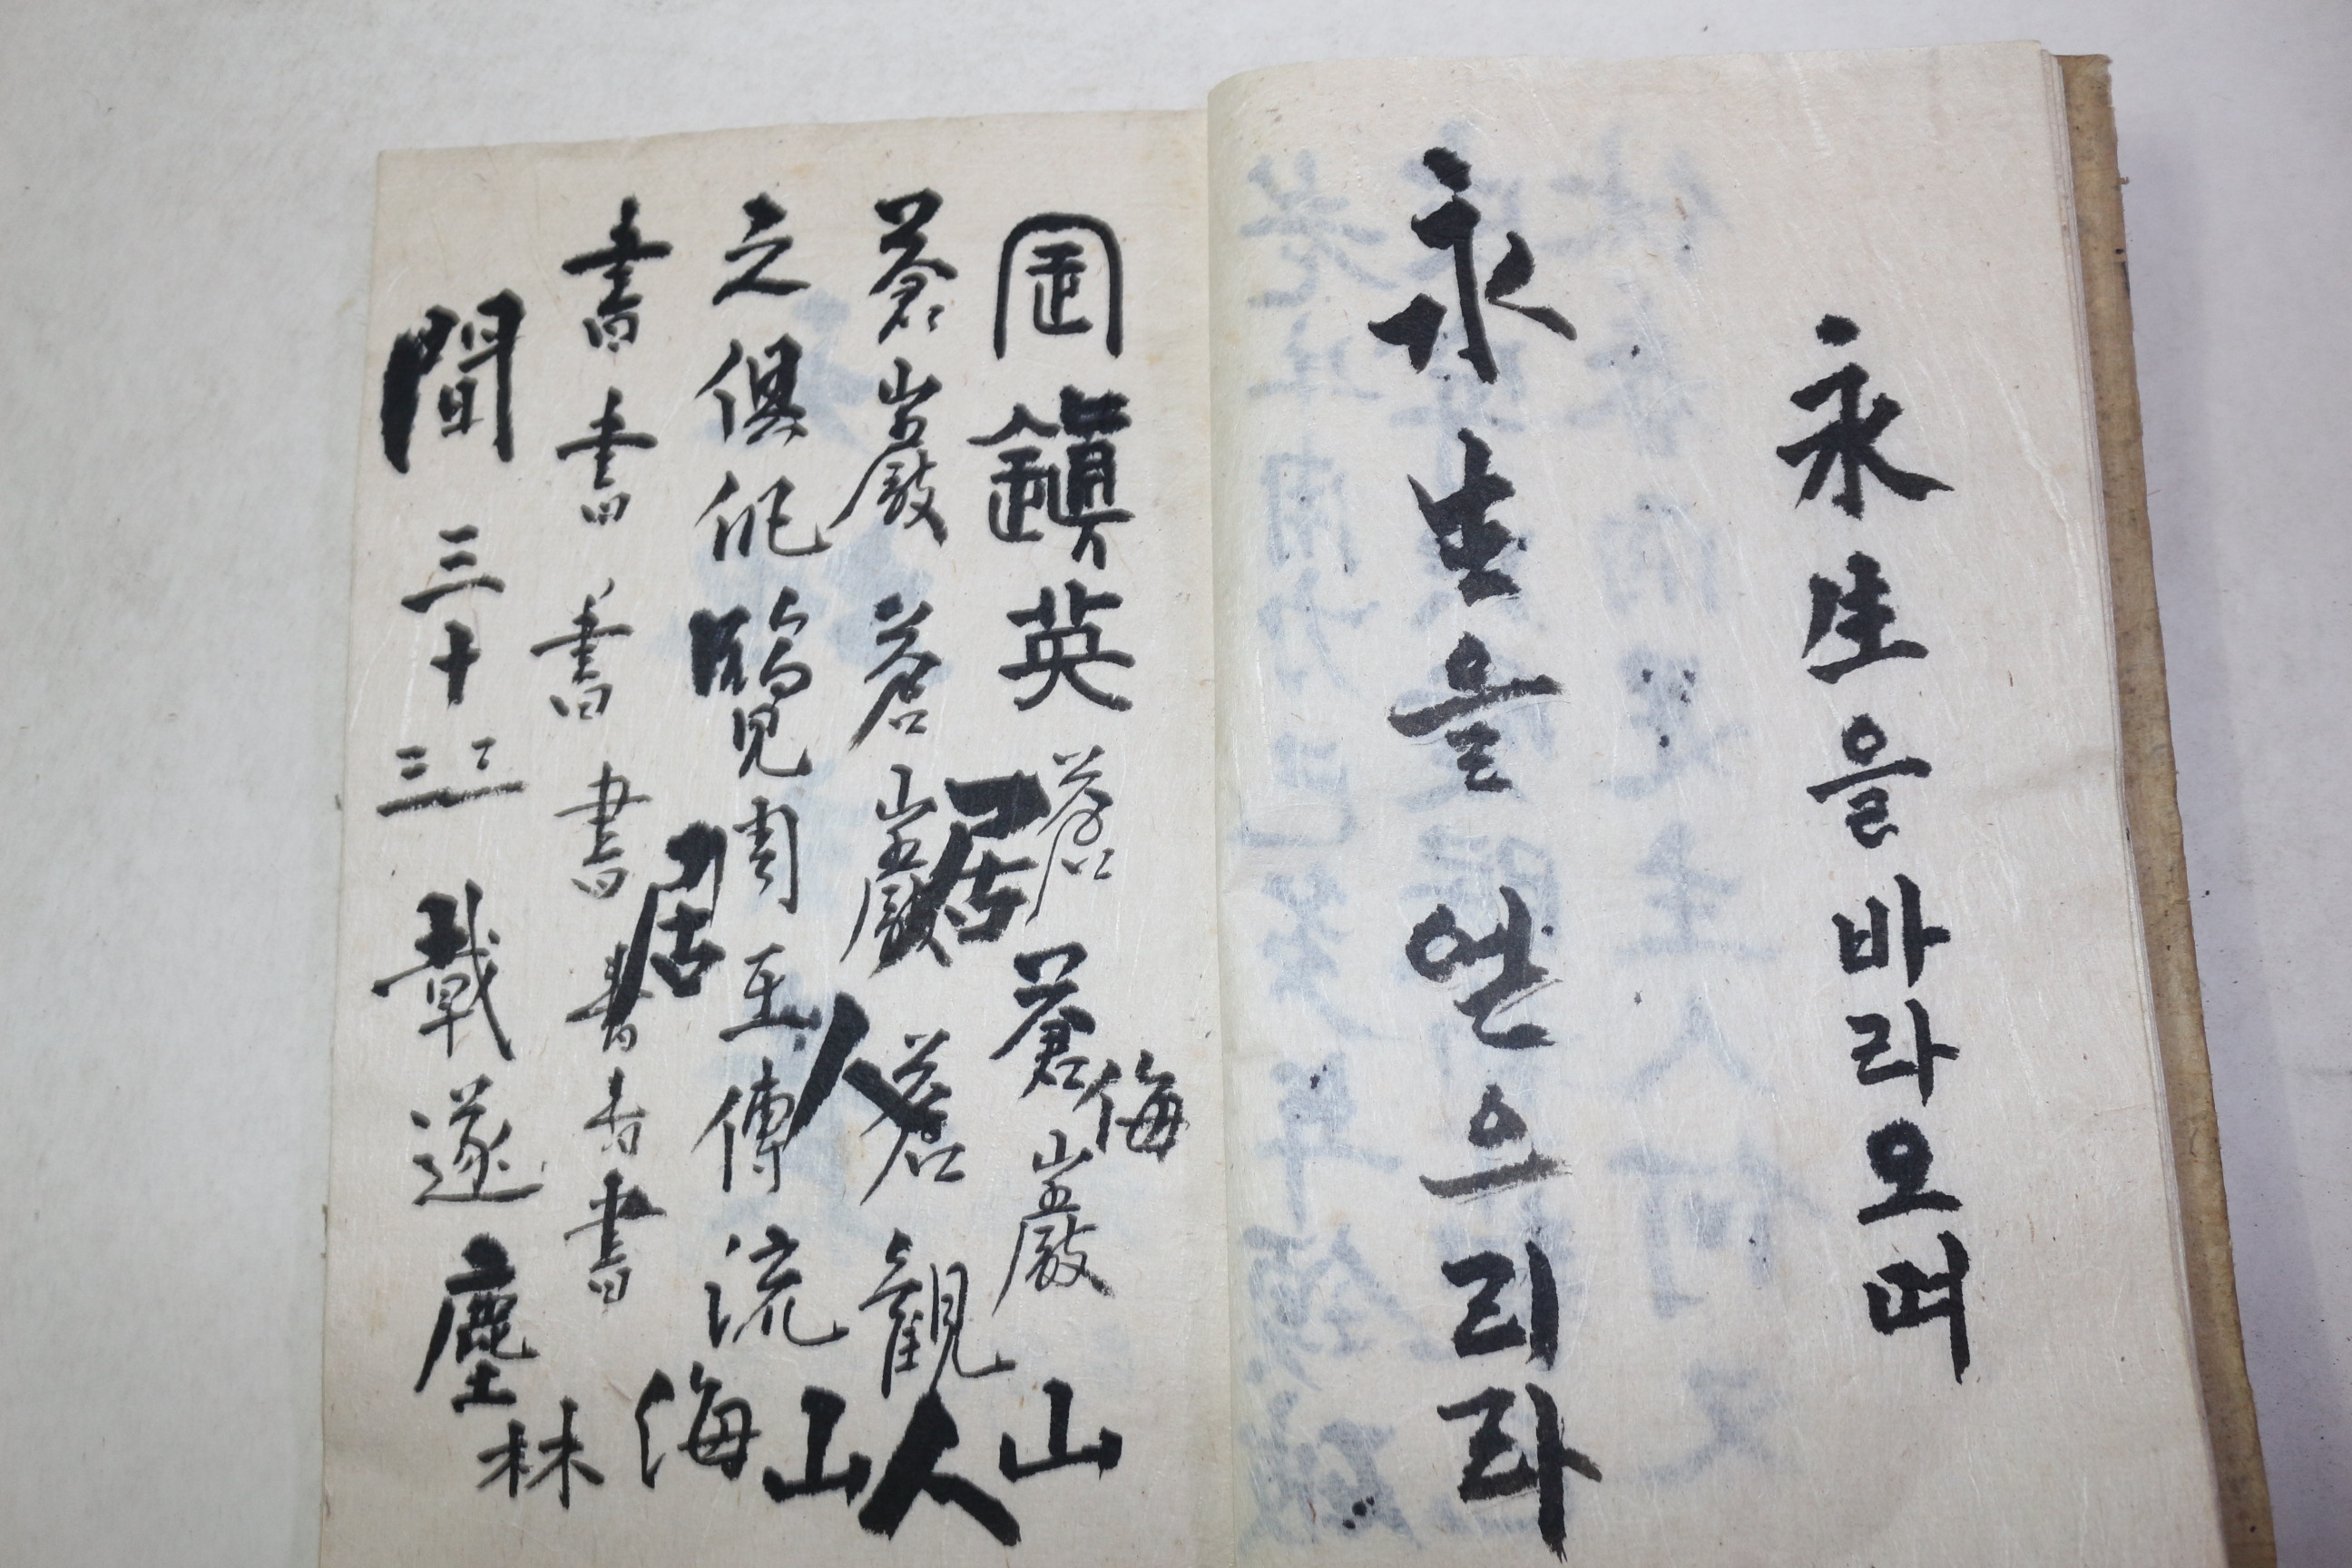 永生을바라오며
永生을얻으리라
鎭英蒼蒼巖山
侮
蒼巖蒼巖蒼觀
居
人
人
之俱 覽周王傳流
山
海
居
書書書書書書書
林
間三十三載遂塵